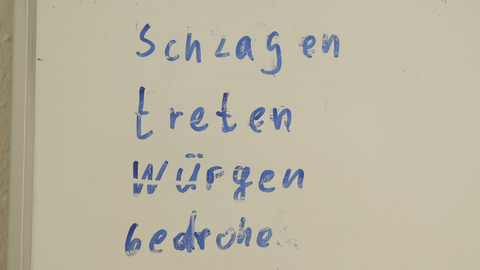 Schlagen
treten
Würgen
bedrohe